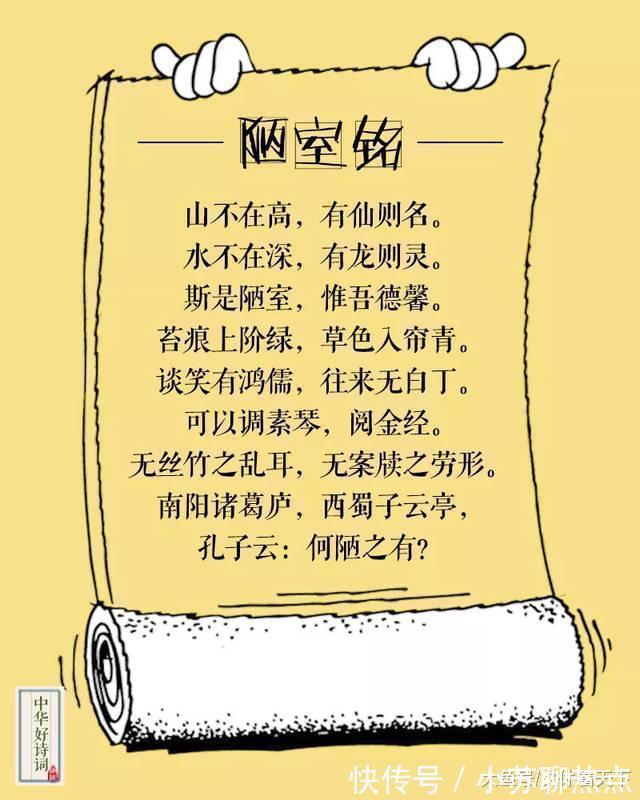 陋室铭
山不在高，有仙则名。
水不在深，有龙则灵。
斯是陋室，惟吾德馨。
苔痕上阶绿，草色入帘青。
谈笑有鸿儒，往来无白丁。
可以调素琴，阅金经。
无丝竹之乱耳，无案牍之劳形。
南阳诸葛庐，西蜀子云亭，
孔子云：何陋之有？
中华好诗词
快传号／小苏聊热点